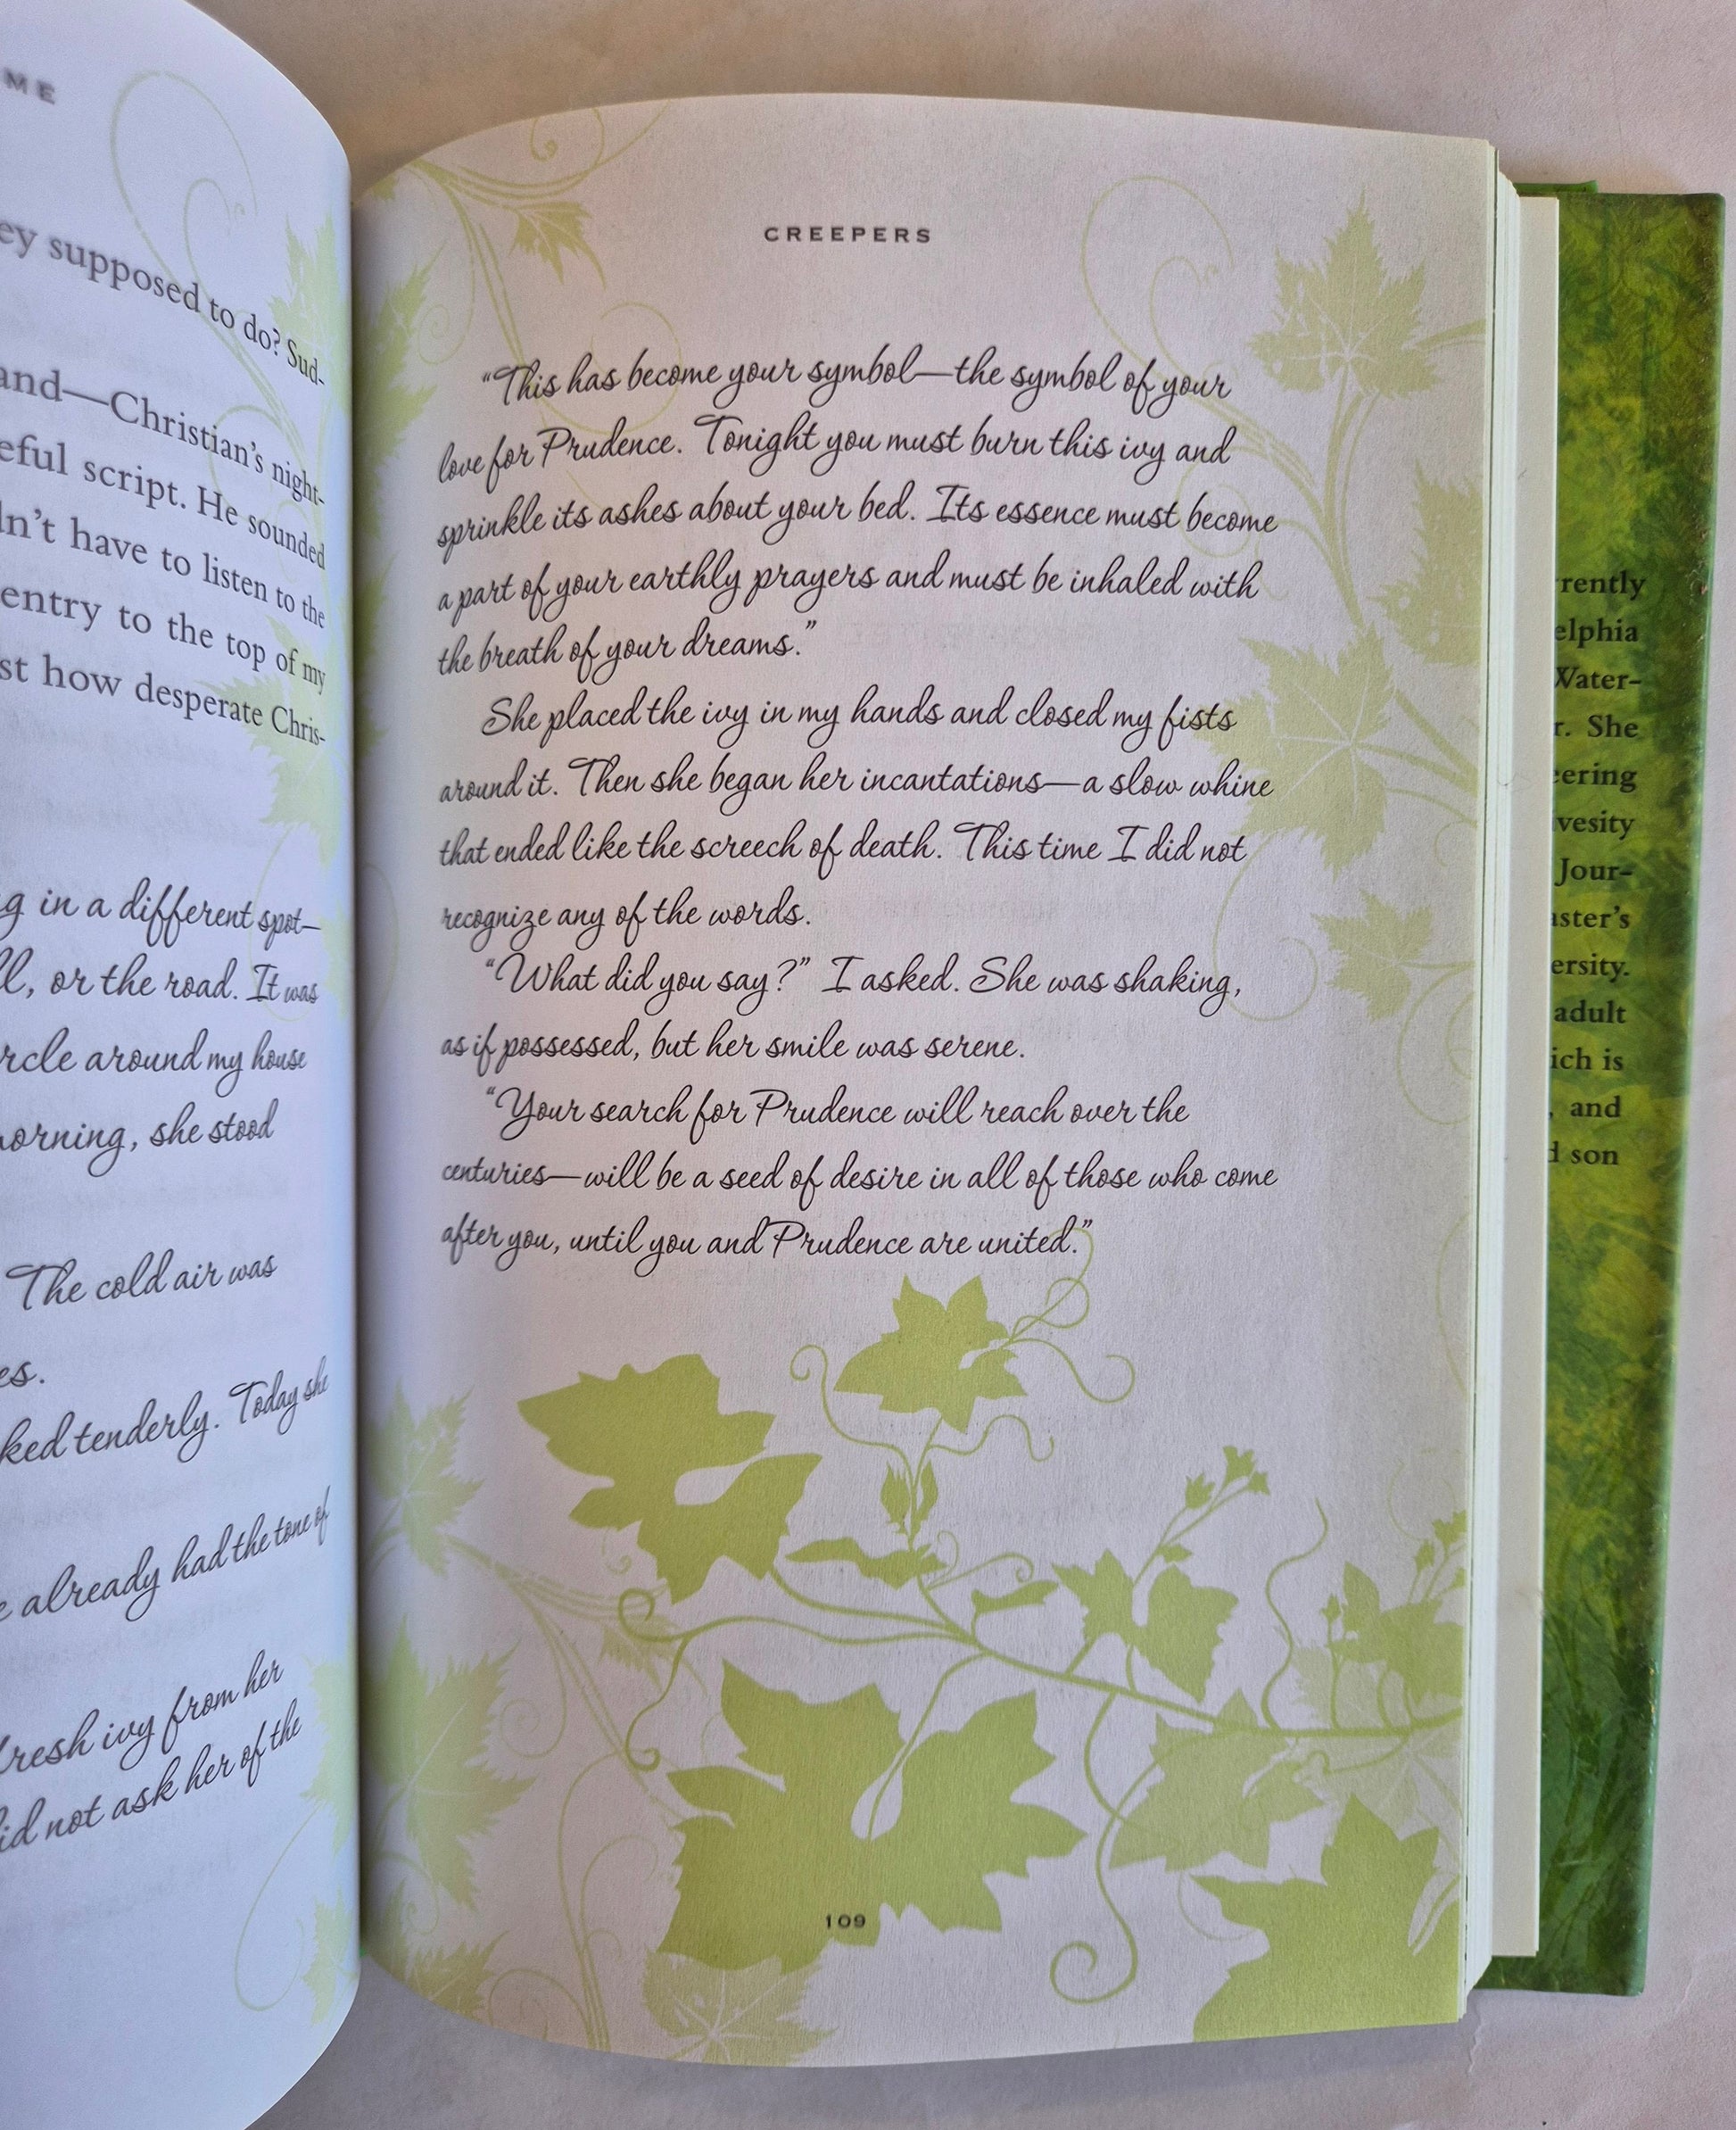 ME
supposed to do? Sud-
and—Christian's night-
script. He sounded
have to listen to the
entry to the top of my
how desperate Chris-
in a different spot—
or the road. It was
around my house
she stood
The cold air was
tenderly. Today she
already had the tone of
ivy from her
not ask her of the
CREEPERS
“This has become your symbol—the symbol of your
love for Prudence. Tonight you must burn this ivy and
sprinkle its ashes about your bed. Its essence must become
a part of your earthly prayers and must be inhaled with
the breath of your dreams.”
She placed the ivy in my hands and closed my fists
around it. Then she began her incantations—a slow whine
that ended like the screech of death. This time I did not
recognize any of the words.
“What did you say?” I asked. She was shaking,
as if possessed, but her smile was serene.
“Your search for Prudence will reach over the
centuries—will be a seed of desire in all of those who come
after you, until you and Prudence are united.”
109
rently
elphia
Water-
r. She
eering
vesity
Jour-
aster's
ersity.
adult
ich is
, and
d son